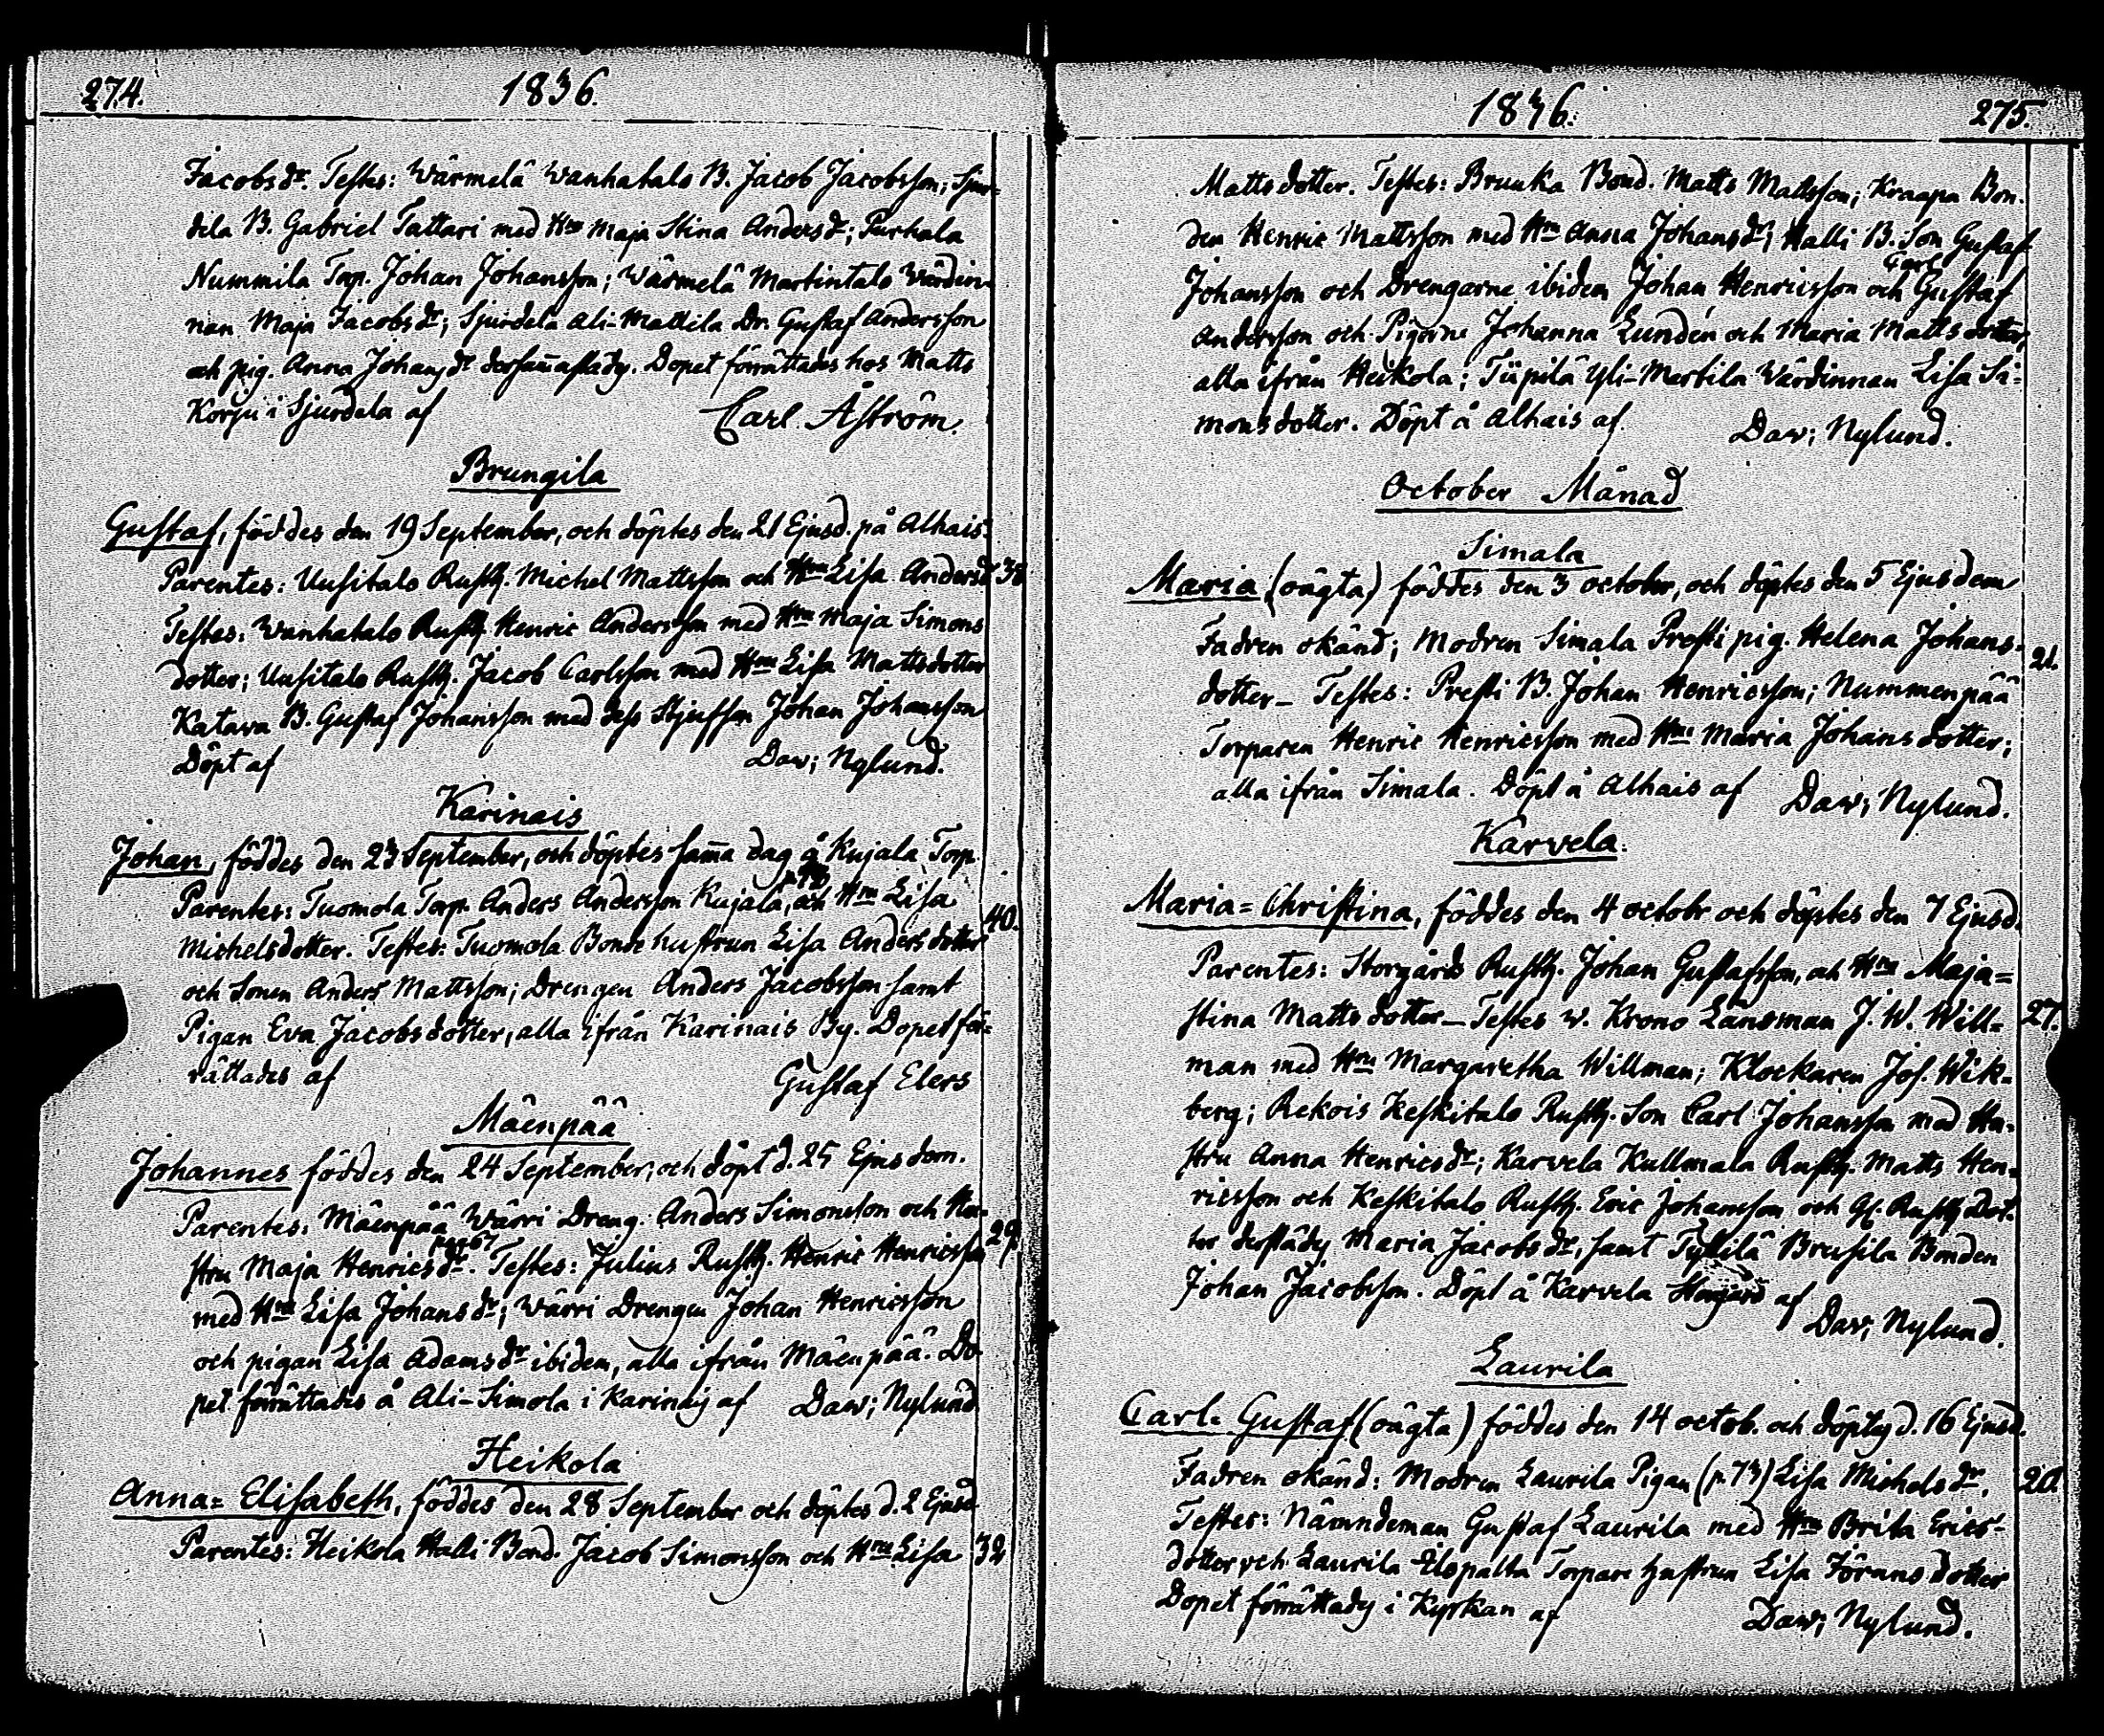 274. 1836.
Jacobsdr. Testes: Wärmelä Wanhatalo B. Jacob Jacobsson; Sjur-
dela B. Gabriel Tattari med Hru Maja Stina Andersdr; Purhala
Nummila Torp. Johan Johansson; Wärmelä Martintalo Wärdin-
nan Maja Jacobsdr; Sjurdela Ali-Mattila Dr. Gustaf Andersson
och pig. Anna Johansdr dersammastädes. Dopet förrättades hos Matts
Korju i Sjurdela af Carl Åström.
Brungila
Gustaf, föddes den 19 September, och döptes den 21 Ejusd. på Alhais.
Parentes: Uusitalo Rusth. Michel Mattsson och Hru Lisa Andersd 38
Testes: Wanhatalo Rusth. Henric Andersson med Hru Maja Simons
dotter; Uusitalo Rusth. Jacob Carlsson med Hru Lisa Mattsdotter
Katava B. Gustaf Johansson med dess Stjufson Johan Johansson
Döpt af Daw; Nylund.
Karinais
Johan, föddes den 23 September, och döptes samma dag å Kujala Torp.
Parentes: Tuomola Torp. Anders Andersson Kujala, och Hru Lisa
Michelsdotter. Testes: Tuomola Bonde hustrun Lisa Andersdotter 40.
och Sonen Anders Mattsson; Drengen Anders Jacobsson samt
Pigan Eva Jacobsdotter, alla ifrån Karinais By. Dopet för-
rättades af Gustaf Elers
Mäenpää
Johannes föddes den 24 September, och döpt d. 25 Ejusdem.
Parentes: Mäenpää Wärri Dreng. Anders Simonsson och Hu-
stru Maja Henricsdr. pag 67 Testes: Julius Rusth. Henric Henricsson 29
med Hru Lisa Johansdr; Wärri Drengen Johan Henricsson
och pigan Lisa Adamsdr ibidem, alla ifrån Mäenpää. Do-
pet förrättades å Ali-Simola i Karinais af Daw; Nylund
Heikola
Anna=Elisabeth, föddes den 28 September och döptes d. 2 Ejusd
Parentes: Heikola Halli Bond. Jacob Simonsson och Hru Lisa 32
1836. 275.
Mattsdotter. Testes: Bruuka Bond. Matts Mattsson; Kraapa Bon-
den Henric Mattsson med Hru Anna Johansdr; Halli B. Son Gustaf
Johansson och Drengarne ibidem Johan Henricsson och Carl Gustaf
Andersson och Pigorne Johanna Lundén och Maria Mattsdotter,
alla ifrån Heikola; Tüpilä Yli-Merbila Wärdinnan Lisa Si-
monsdotter. Döpt å Alhais af Daw; Nylund.
October Månad
Simala
Maria (oägta) föddes den 3 october, och döptes den 5 Ejusdem
Fadren okänd; Modren Simala Presti pig. Helena Johans- 21.
dotter_ Testes: Presti B. Johan Henricsson; Nummenpää
Torparen Henric Henricsson med Hru Maria Johansdotter;
alla ifrån Simala. Döpt å Alhais af Daw; Nylund.
Karvela.
Maria=Christina, föddes den 4 octobr och döptes den 7 Ejusd.
Parentes: Storgårds Rusth. Johan Gustafsson, och Hru Maja=
stina Mattsdotter_ Testes w. Krono Länsman J. W. Will= 27.
man med Hru Margaretha Willman; Klockaren Jos. Wik-
berg; Rekois Keskitalo Rusth. Son Carl Johansson med Hu-
stru Anna Henricsdr; Karvela Kullmala Rusth. Matts Hen-
ricsson och Keskitalo Rusth. Eric Johansson och Gl. Rusth Dot-
ter derstädes Maria Jacobsdr, samt Tyllilä Brusila Bonden
Johan Jacobsson. Döpt å Karvela Storgård af Daw; Nylund.
Laurila
Carl=Gustaf (oägta) föddes den 14 octob. och döptes d. 16 Ejusd.
Fadren okänd: Modren Laurila Pigan (p 73) Lisa Michelsdr. 20.
Testes: Nämndeman Gustaf Laurila med Hru Brita Erics-
dotter och Laurila Torpare hustrun Lisa Jöransdotter
Dopet förrättades i Kyrkan af Daw; Nylund.